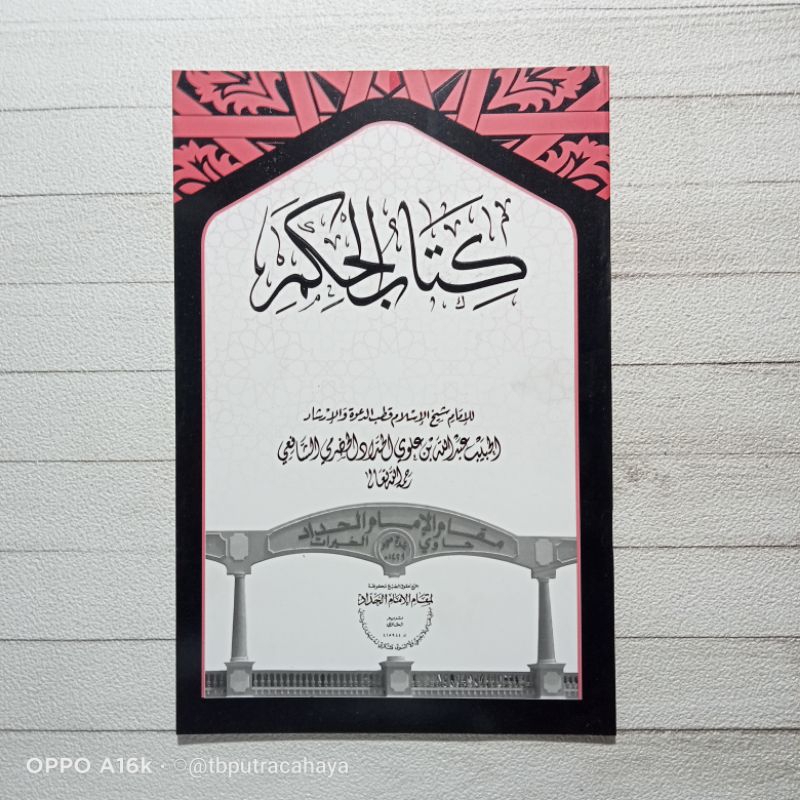 كِتَابُ الْحِكَمِ
للإمام شيخ الإسلام قطب الدعوة والإرشاد
الحبيب عبد الله بن علوي الحداد الحضرمي الشافعي
رحمه الله تعالى
مقام الإمام الحداد
حاوي الخيرات
لمقام الإمام الحداد
OPPO A16k · @tbputracahaya